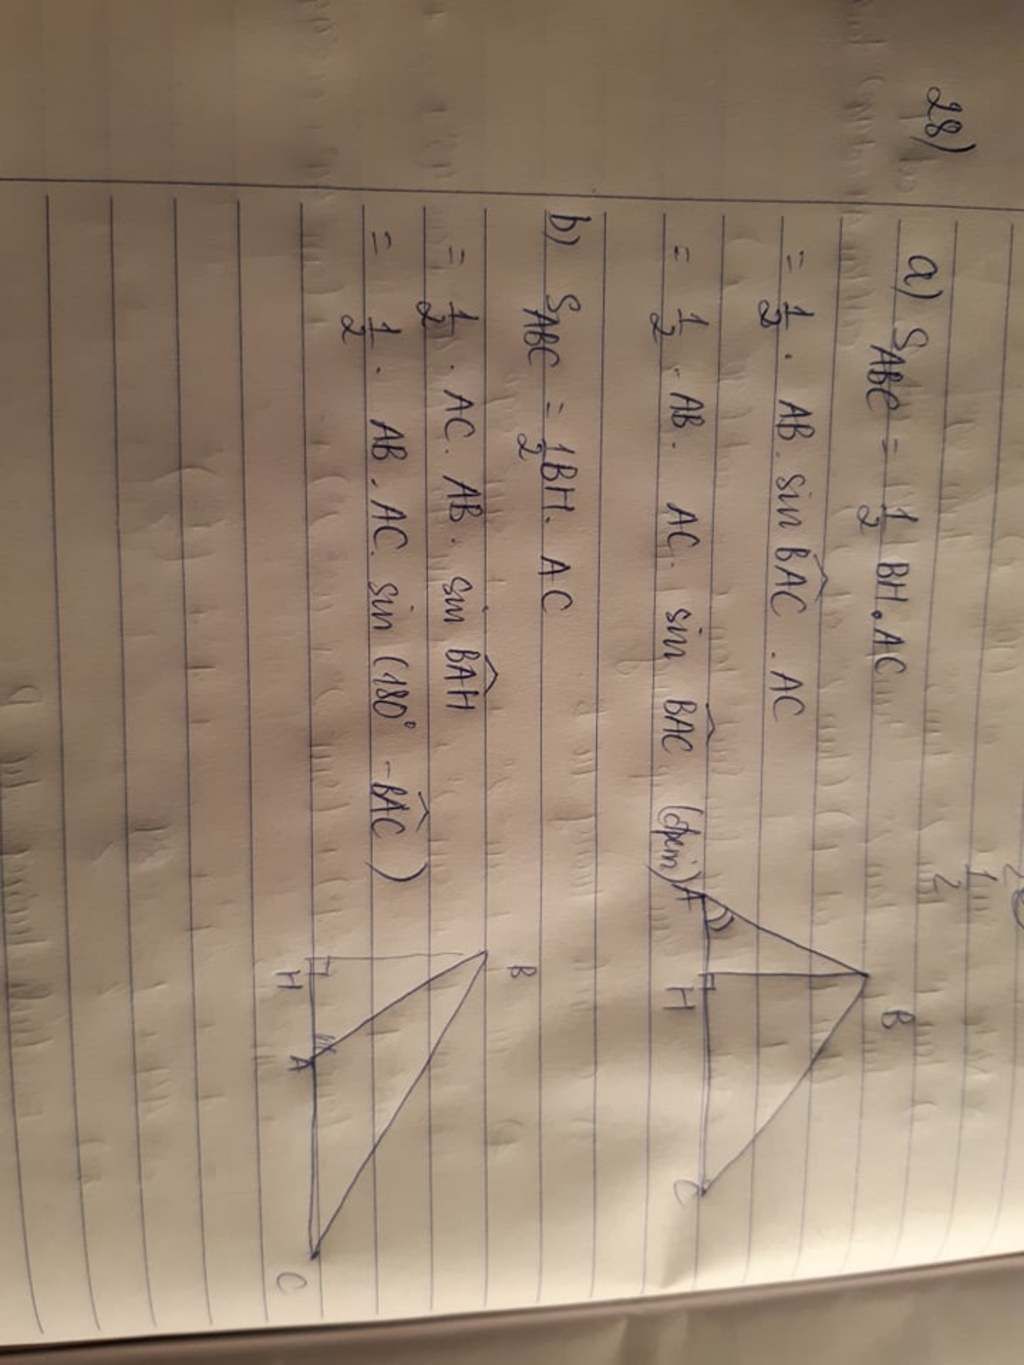 28)
a) S_ABC = 1/2 BH.AC
= 1/2 . AB. sin BAC^ . AC
= 1/2 . AB. AC. sin BAC^ (đpcm)
A B H C
b) S_ABC = 1/2 BH. AC
= 1/2 . AC. AB. sin BAH^
= 1/2 . AB. AC. sin (180° - BAC^)
B H A C
1/2